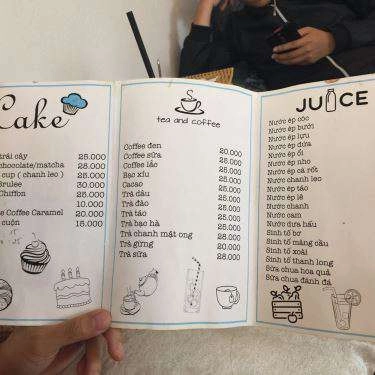 Cake
trái cây 25.000
chocolate/matcha 25.000
cup ( chanh leo ) 25.000
Brulee 30.000
Chiffon 25.000
10.000
Coffee Caramel 20.000
cuộn 15.000
tea and coffee
Coffee đen 20.000
Coffee sữa 25.000
Coffee lắc 25.000
Bạc xỉu 25.000
Cacao 25.000
Trà dâu 25.000
Trà đào 25.000
Trà táo 25.000
Trà bạc hà 25.000
Trà chanh mật ong 28.000
Trà gừng 20.000
Trà sữa 28.000
JUICE
Nước ép cóc
Nước ép bưởi
Nước ép lựu
Nước ép dứa
Nước ép ổi
Nước ép nho
Nước ép cà rốt
Nước chanh leo
Nước ép táo
Nước ép lê
Nước chanh
Nước cam
Nước dưa hấu
Sinh tố bơ
Sinh tố mãng cầu
Sinh tố xoài
Sinh tố thanh long
Sữa chua hoa quả
Sữa chua đánh đá